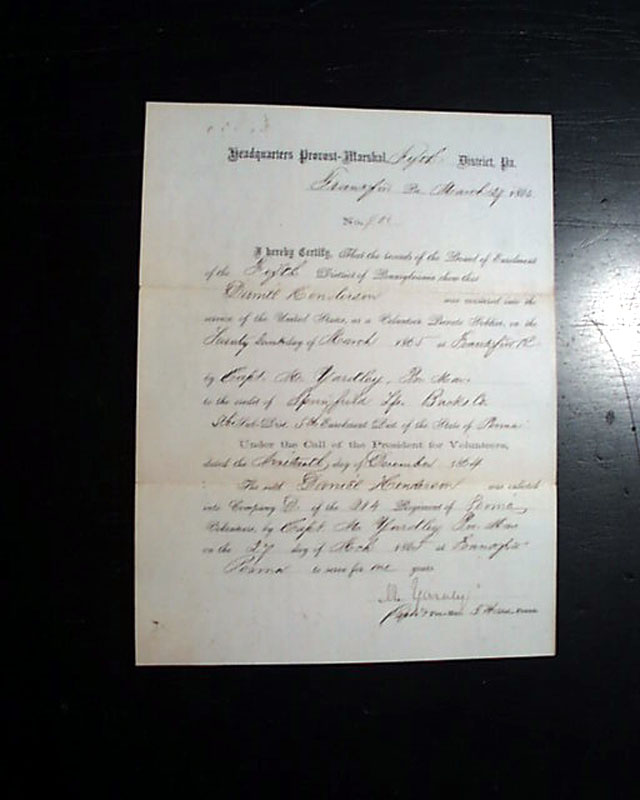 Headquarters Provost-Marshal, Fifth District, Pa.
Pa. March 29 1865
No.
I hereby Certify, That the records of the Board of Enrolment
of the Fifth District of Pennsylvania show that
Daniel Henderson was mustered into the
service of the United States, as a Volunteer Private Soldier, on the
Twenty day of March 1865 at
by Capt. M. Yardley, Pro Mar
to the credit of Springfield Tp. Bucks Co
Sub-Dist. 5th Enrolment Dist. of the State of Penna
Under the Call of the President for Volunteers,
dated the Nineteenth day of December 1864
The said Daniel Henderson was enlisted
into Company D. of the 214 Regiment of Penna
Volunteers, by Capt M Yardley Pro Mar
on the 27 day of Mch 1865 at
Penna to serve for one years
M. Yardley
Capt & Pro Mar 5